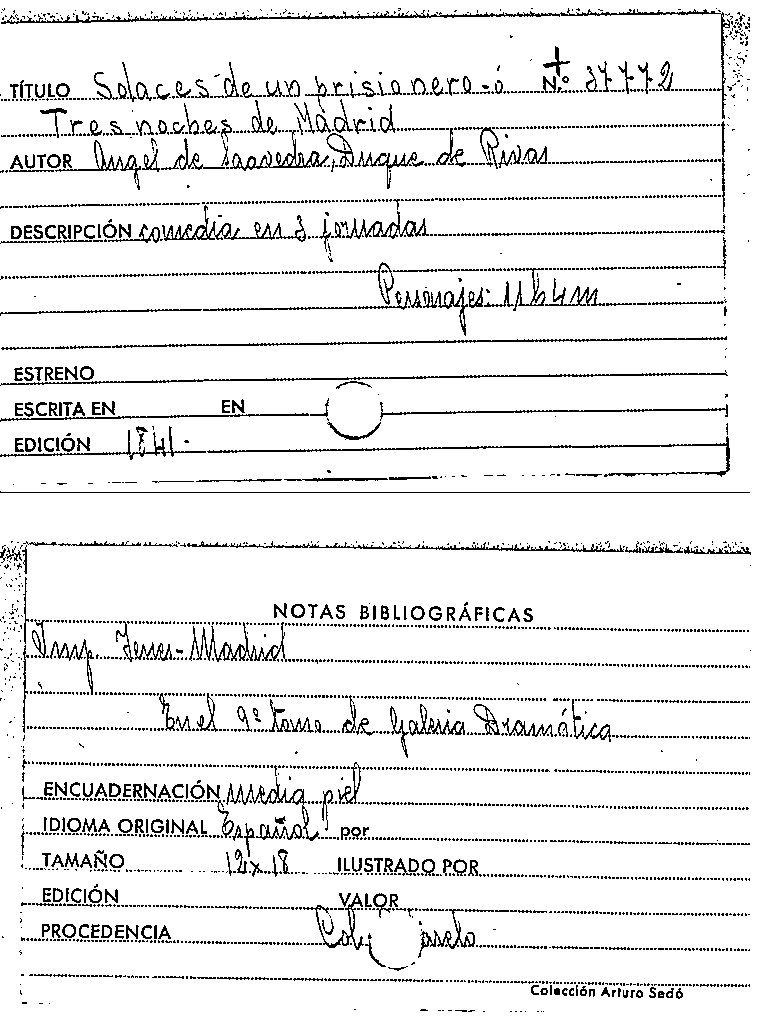 TÍTULO Solaces de un prisionero-ó N.º 37772
Tres noches de Madrid
AUTOR Angel de Saavedra, Duque de Rivas
DESCRIPCIÓN comedia en 3 jornadas
Personajes: 11h 4m
ESTRENO
ESCRITA EN EN
EDICIÓN 1841.
NOTAS BIBLIOGRÁFICAS
Imp. Yenes-Madrid
En el 9º tomo de Galeria Dramática
ENCUADERNACIÓN media piel
IDIOMA ORIGINAL Español por
TAMAÑO 12x18 ILUSTRADO POR
EDICIÓN VALOR
PROCEDENCIA
Colección Arturo Sedó